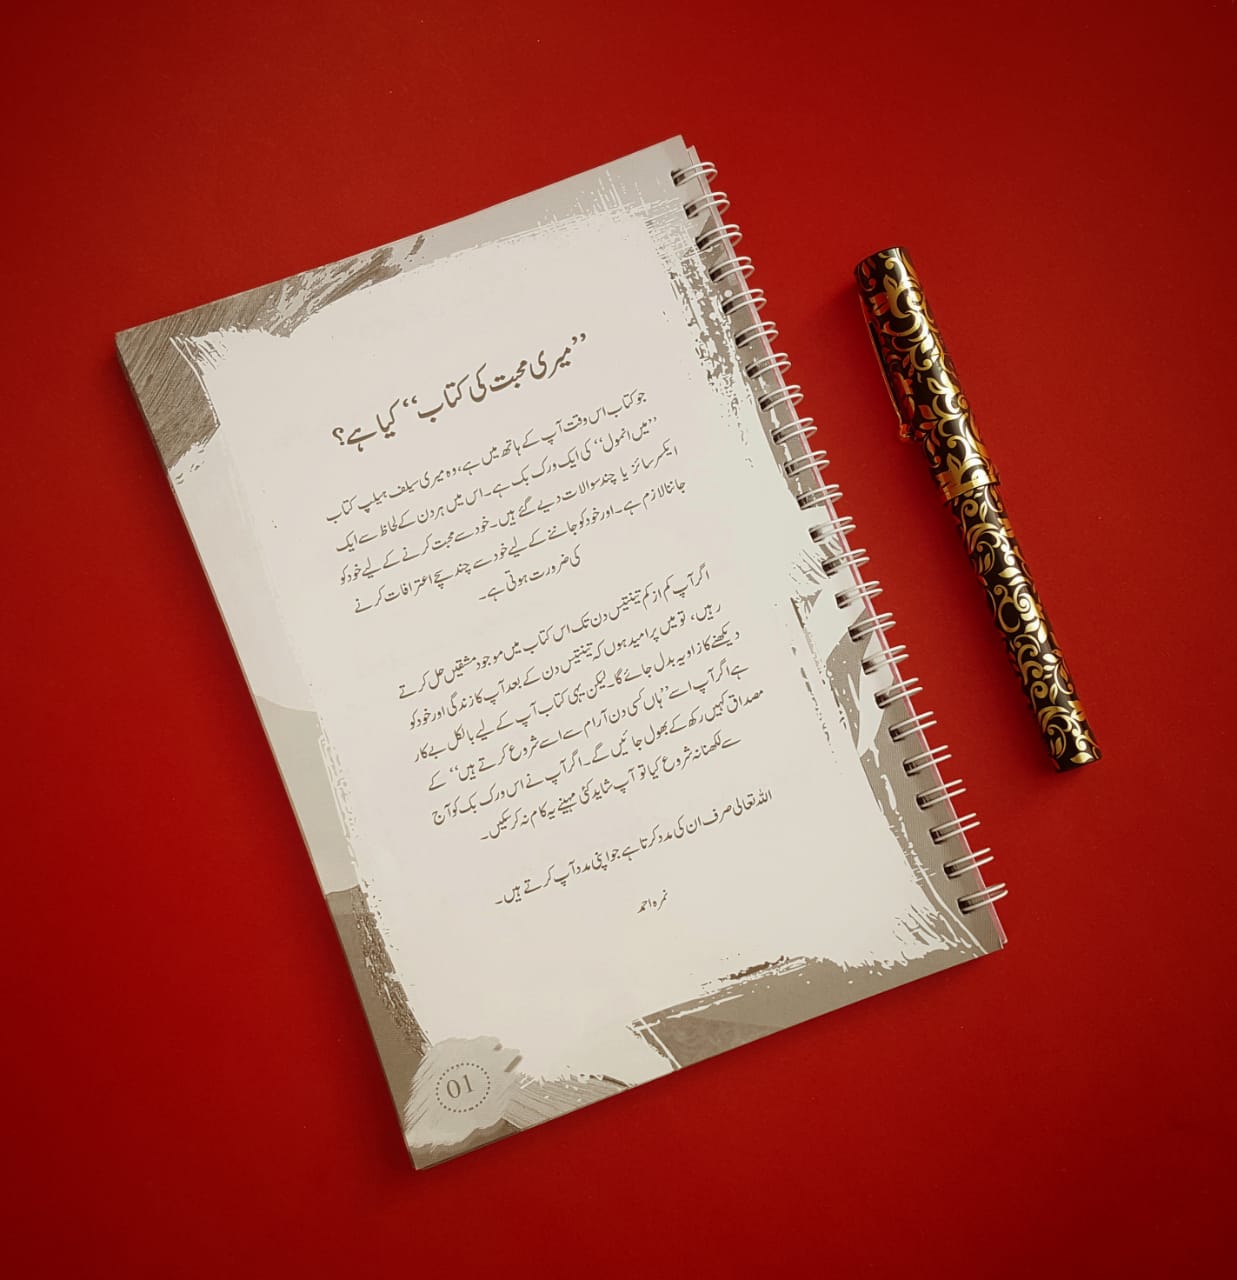 ”میری محبت کی کتاب“ کیا ہے؟
جو کتاب اس وقت آپ کے ہاتھ میں ہے، وہ میری سیلف ہیلپ کتاب
”میں انمول“ کی ایک ورک بک ہے۔ اس میں ہر دن کے لحاظ سے ایک
ایکسرسائز یا چند سوالات دیے گئے ہیں۔ خود سے محبت کرنے کے لیے خود کو
جاننا لازم ہے۔ اور خود کو جاننے کے لیے خود سے چند سچے اعترافات کرنے
کی ضرورت ہوتی ہے۔
اگر آپ کم از کم تینتیس دن تک اس کتاب میں موجود مشقیں حل کرتے
رہیں، تو میں پرامید ہوں کہ تینتیس دن کے بعد آپ کا زندگی اور خود کو
دیکھنے کا زاویہ بدل جائے گا۔ لیکن یہی کتاب آپ کے لیے بالکل بے کار
ہے اگر آپ اسے ”ہاں کسی دن آرام سے اسے شروع کرتے ہیں“ کے
مصداق کہیں رکھ کے بھول جائیں گے۔ اگر آپ نے اس ورک بک کو آج
سے لکھنا نہ شروع کیا تو آپ شاید کئی مہینے یہ کام نہ کر سکیں۔
اللہ تعالی صرف ان کی مدد کرتا ہے جو اپنی مدد آپ کرتے ہیں۔
نمرہ احمد
01